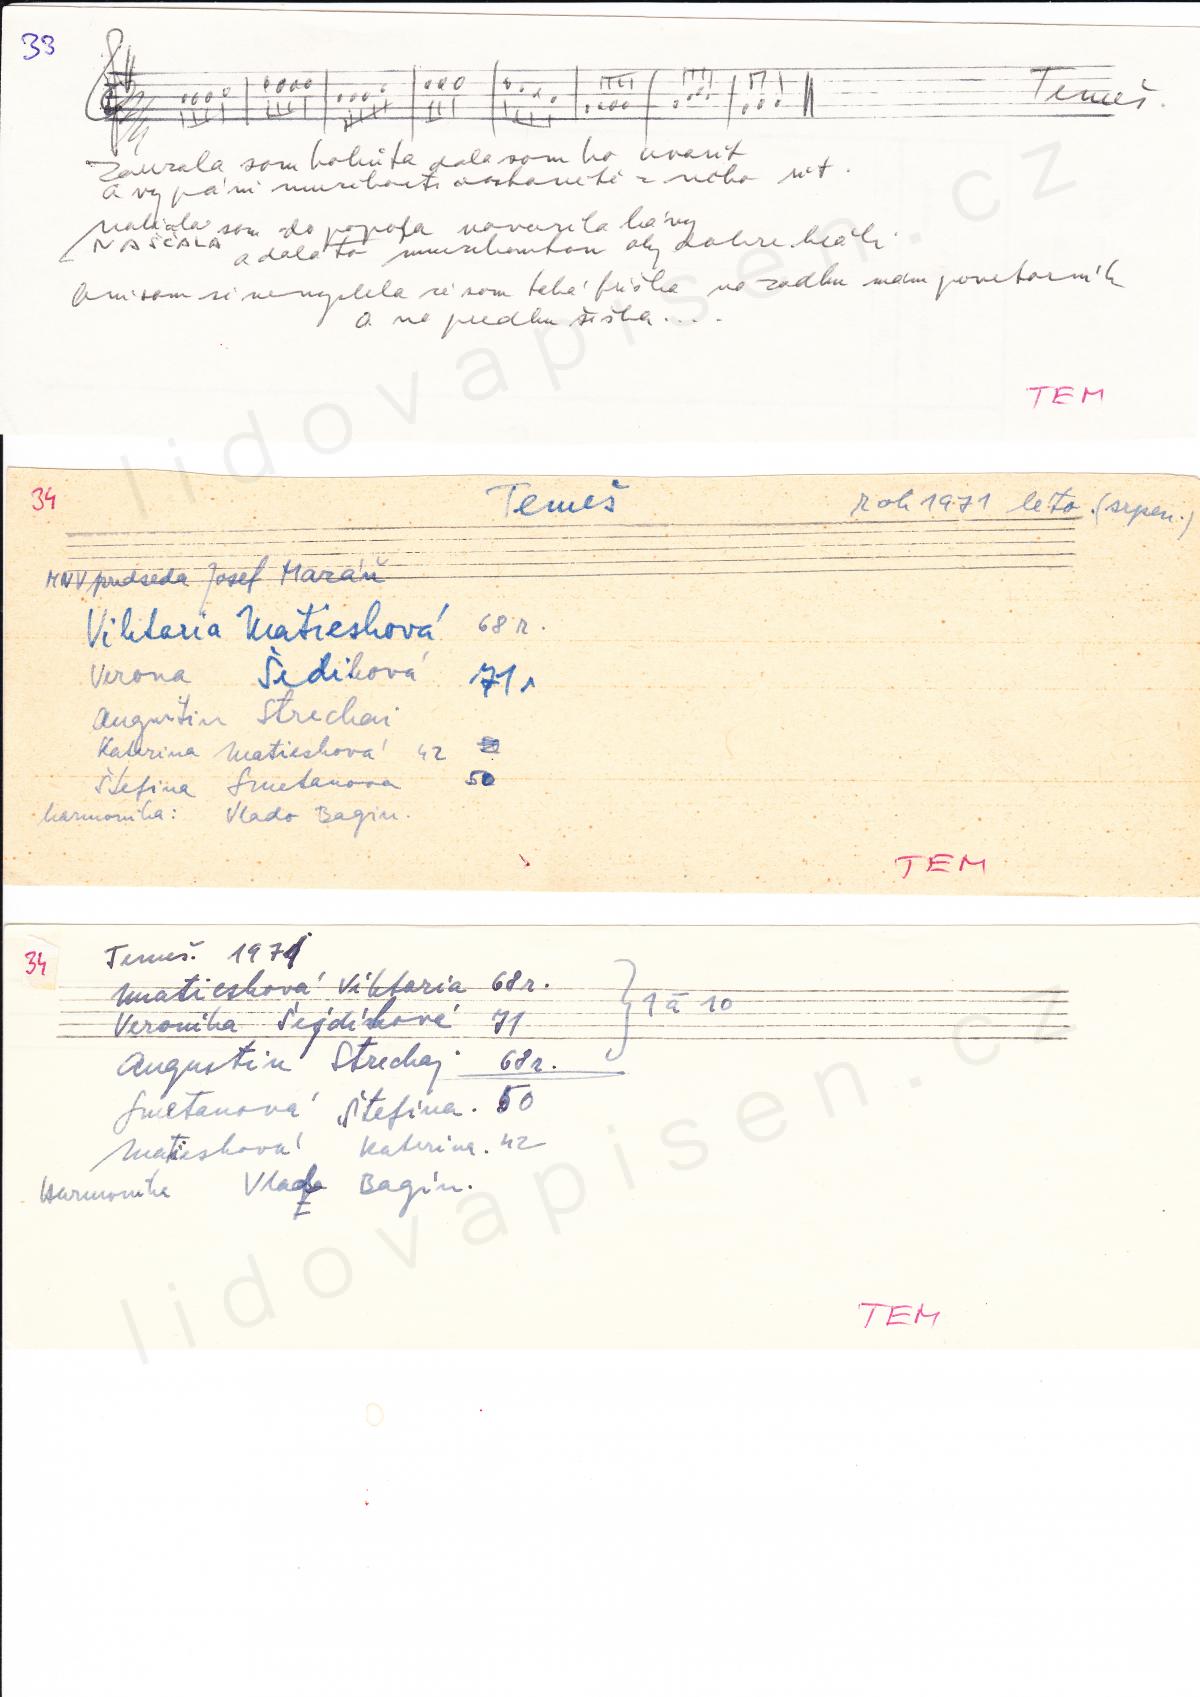 33
Temeš.
Zabrala som kohúta dala som ho uvarit
a vy páni muzikanti dostanete z neho rit.
som do popola navarila kávy
NAŠČALA
a dala to muzikantom aby dobre hráli.
Ani som si nemyslela že som taká fiška na zadku mám povetarník
a na predku šiška....
TEM
34
Temeš
rok 1971 leto. (srpen.)
MNV předseda Josef Maráň
Viktaria Matiesková 68 r.
Verona Šedíková 71 r
Augustin Strechaj
Katerina Matieskova 42
Štefina Smetanova 50
harmonika: Vlado Bagin.
TEM
34
Temeš. 1971
Matieskova Viktaria 68 r.
Veronika Šejdíková 71
1 á 10
Augustin Strechaj 68 r.
Smetanová Štefina. 50
Matieskova Katerina. 42
Harmonika Bagin.
TEM
lidovapisen.cz
lidovapisen.cz